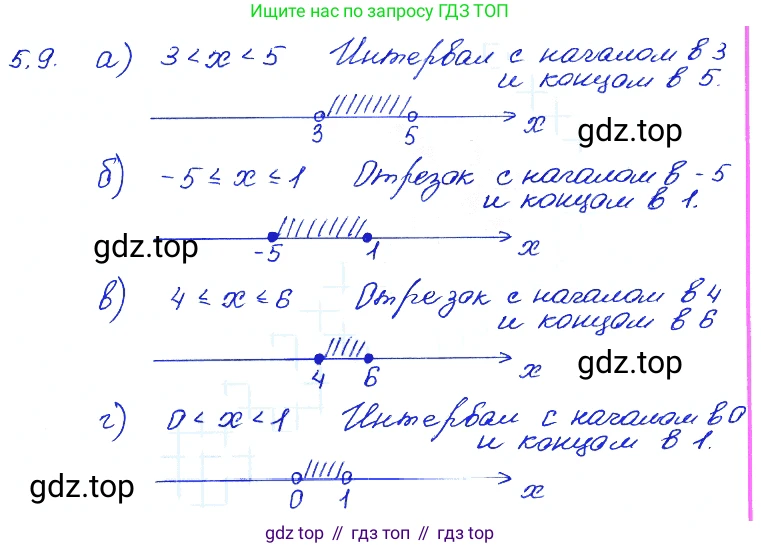 Ищите нас по запросу ГДЗ ТОП
5.9. а) 3 < x < 5 Интервал с началом в 3
и концом в 5.
3 5 x
gdz.top
б) -5 ≤ x ≤ 1 Отрезок с началом в -5
и концом в 1.
gdz.top
-5 1 x
в) 4 ≤ x ≤ 6 Отрезок с началом в 4
и концом в 6
4 6 x
gdz.top
г) 0 < x < 1 Интервал с началом в 0
и концом в 1.
gdz.top
0 1 x
gdz top // гдз топ // gdz.top